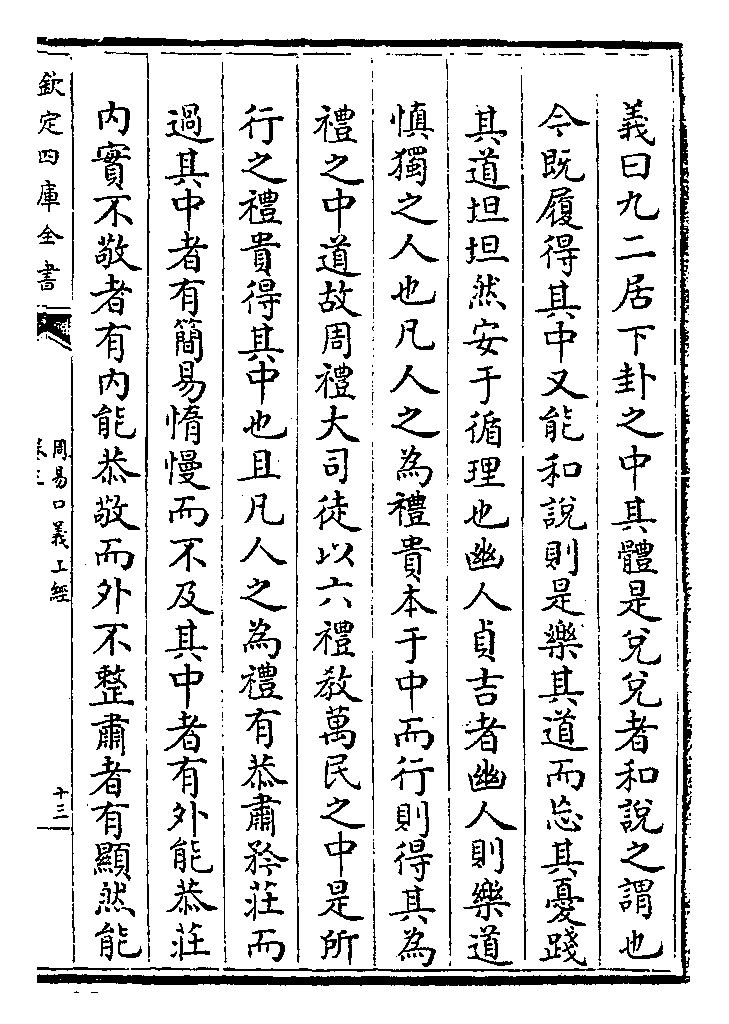 義曰九二居下卦之中其體是兌兌者和說之謂也
今既履得其中又能和說則是樂其道而忘其憂踐
其道坦坦然安于循理也幽人貞吉者幽人則樂道
慎獨之人也凡人之為禮貴本于中而行則得其為
禮之中道故周禮大司徒以六禮教萬民之中是所
行之禮貴得其中也且凡人之為禮有恭肅矜莊而
過其中者有簡易惰慢而不及其中者有外能恭莊
内實不敬者有内能恭敬而外不整肅者有顯然能
欽定四庫全書
周易口義上經
十三